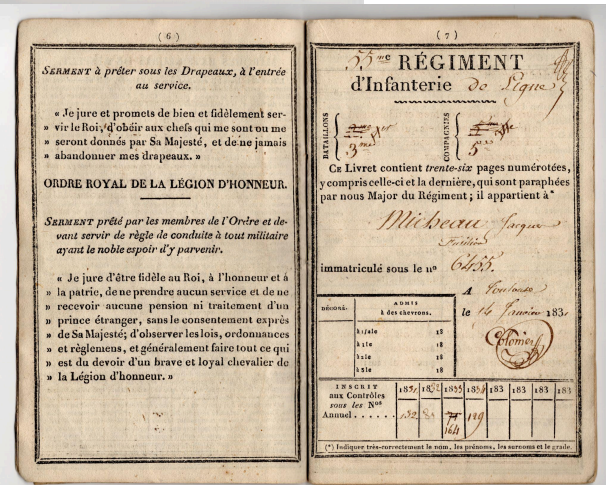 ( 6 )
SERMENT à prêter sous les Drapeaux, à l'entrée
au service.
« Je jure et promets de bien et fidèlement ser-
» vir le Roi, d'obéir aux chefs qui me sont ou me
» seront donnés par Sa Majesté, et de ne jamais
» abandonner mes drapeaux. »
ORDRE ROYAL DE LA LÉGION D'HONNEUR.
SERMENT prêté par les membres de l'Ordre et de-
vant servir de règle de conduite à tout militaire
ayant le noble espoir d'y parvenir.
« Je jure d'être fidèle au Roi, à l'honneur et à
» la patrie, de ne prendre aucun service et de ne
» recevoir aucune pension ni traitement d'un
» prince étranger, sans le consentement exprès
» de Sa Majesté; d'observer les lois, ordonnances
» et règlemens, et généralement faire tout ce qui
» est du devoir d'un brave et loyal chevalier de
» la Légion d'honneur. »
( 7 )
55me RÉGIMENT
d'Infanterie de Ligne
BATAILLONS
3me
COMPAGNIES
5me
CE Livret contient trente-six pages numérotées,
y compris celle-ci et la dernière, qui sont paraphées
par nous Major du Régiment; il appartient à*
Micheau Jacques
Fusilier
immatriculé sous le no 6455.
A Toulouse
le 14 Janvier 183
Colomès
DÉSIGNÉ.
ADMIS
à des chevrons.
à 1/2 le 18
à 1 le 18
à 2 le 18
à 3 le 18
INSCRIT
aux Contrôles
sous les Nos
Annuel
1831 1832 1833 1834 183 183 183 183
132 77 129
164
(*) Indiquer très-correctement le nom, les prénoms, les surnoms et le grade.